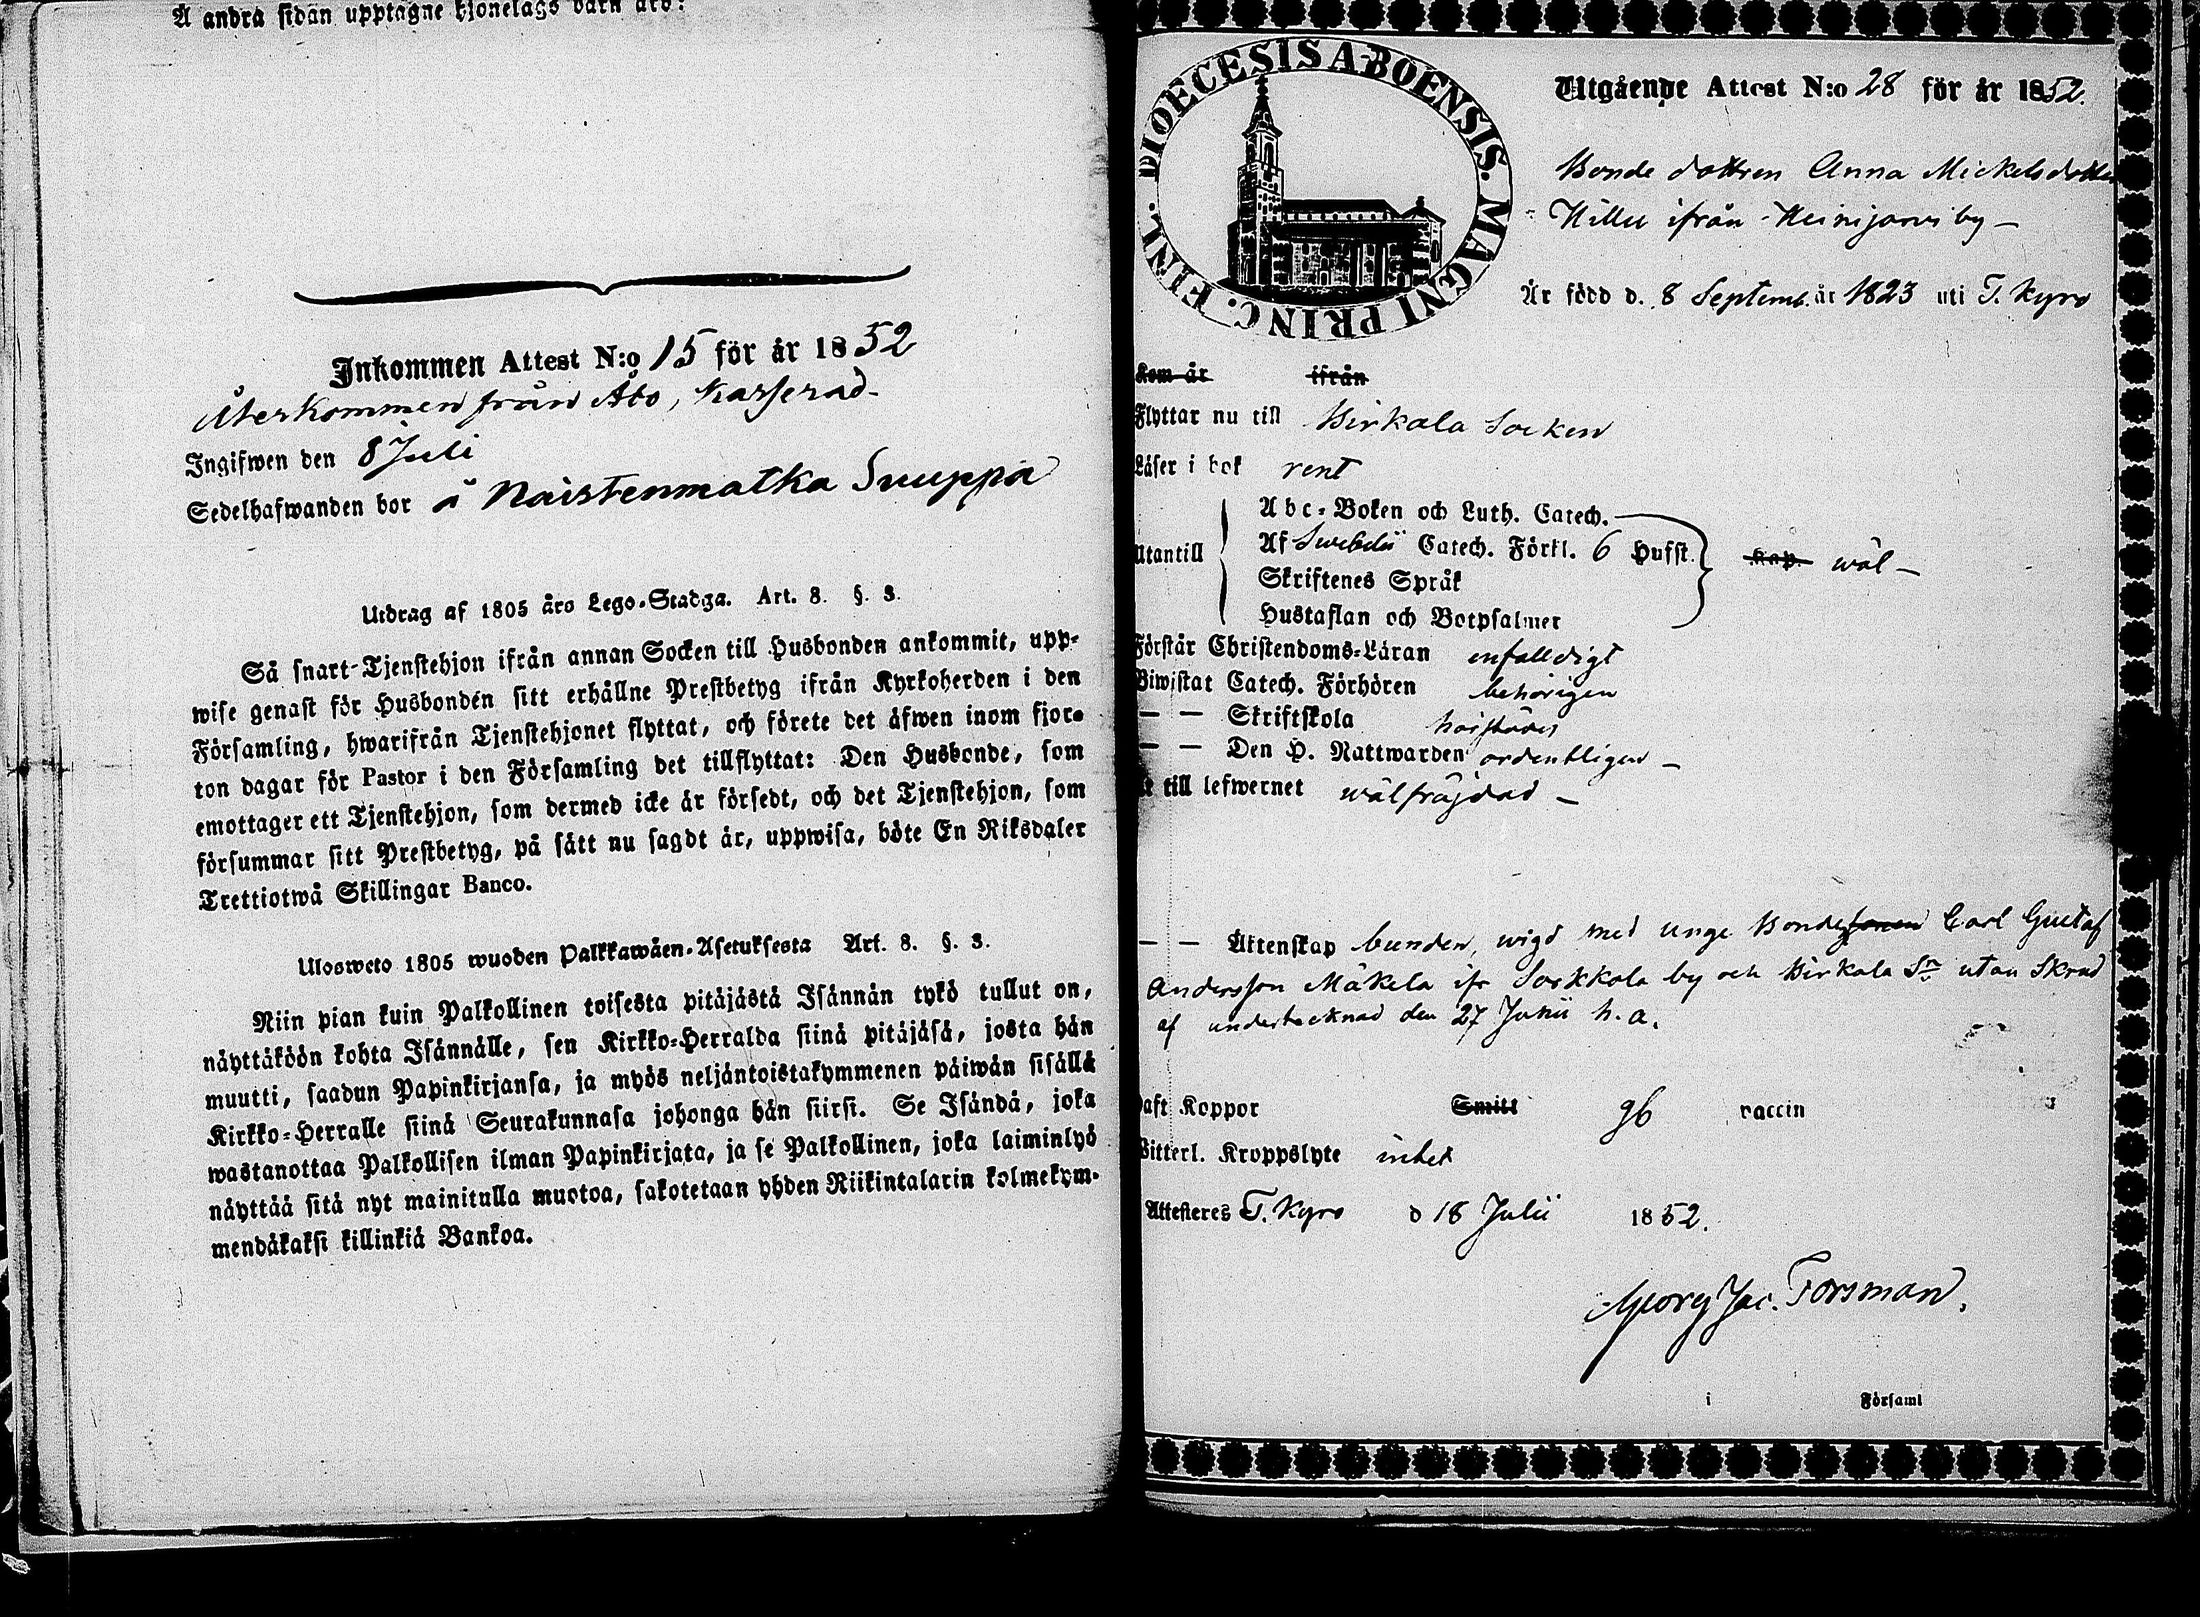 Å andra sidan upptagne hjonelags barn äro:
Inkommen Attest N:o 15 för år 1852
Återkommen från Åbo, Kasserad.
Ingifwen den 8 Juli
Sedelhafwanden bor å Naistenmatka Suuppa
Utdrag af 1805 åro Lego-Stadga. Art. 8. §. 3.
Så snart Tjenstehjon ifrån annan Socken till Husbonden ankommit, upp-
wise genast för Husbonden sitt erhållne Prestbetyg ifrån Kyrkoherden i den
Församling, hwarifrån Tjenstehjonet flyttat, och förete det äfwen inom fjor-
ton dagar för Pastor i den Församling det tillflyttat: Den Husbonde, som
emottager ett Tjenstehjon, som dermed icke är försedt, och det Tjenstehjon, som
försummar sitt Prestbetyg, på sätt nu sagdt är, uppwisa, böte En Riksdaler
Trettiotwå Skillingar Banco.
Ulosweto 1805 wuoden Palkkawäen-Asetuksesta Art. 8. §. 3.
Niin pian kuin Palkollinen toisesta pitäjästä Isännän tykö tullut on,
näyttäköön kohta Isännälle, sen Kirkko-Herralda siinä pitäjäsä, josta hän
muutti, saadun Papinkirjansa, ja myös neljäntoistakymmenen päiwän sisällä
Kirkko-Herralle siinä Seurakunnasa johonga hän siirsi. Se Isändä, joka
wastanottaa Palkollisen ilman Papinkirjata, ja se Palkollinen, joka laiminlyö
näyttää sitä nyt mainitulla muotoa, sakotetaan yhden Riikintalarin kolmekym-
mendäkaksi killinkiä Bankoa.
DIOECESIS ABOENSIS. MAGNI PRINC. FINL.
Utgående Attest N:o 28 för år 1852.
Bonde dottren Anna Mickelsdotter
Hillu ifrån Heinijärvi by –
Är född d. 8 Septemb. år 1823 uti T. Kyro
Kom år ifrån
Flyttar nu till Birkala Socken
Läser i bok rent
Abc-Boken och Luth. Catech.
Utantill Af Swebelii Catech. Förkl. 6 Hufst. Kap. wäl –
Skriftenes Språk
Hustaflan och Botpsalmer
Förstår Christendoms-Läran enfalldigt
Biwistat Catech. Förhören behörigen
– – Skriftskola
– – Den H. Nattwarden ordentligen –
till lefwernet wälfräjdad –
– – Äktenskap bunden, wigd med unge Bondesonen Carl Gustaf
Andersson Mäkelä ifr Sorkkala by och Birkala Sn utan Skrud
af undertecknad den 27 Junii h. a.
Haft Koppor Smitt gb vaccin
Witterl. Kroppslyte intet
Attesteres T. Kyro d 18 Julii 1852.
Georg Jac. Forsman.
i Församl